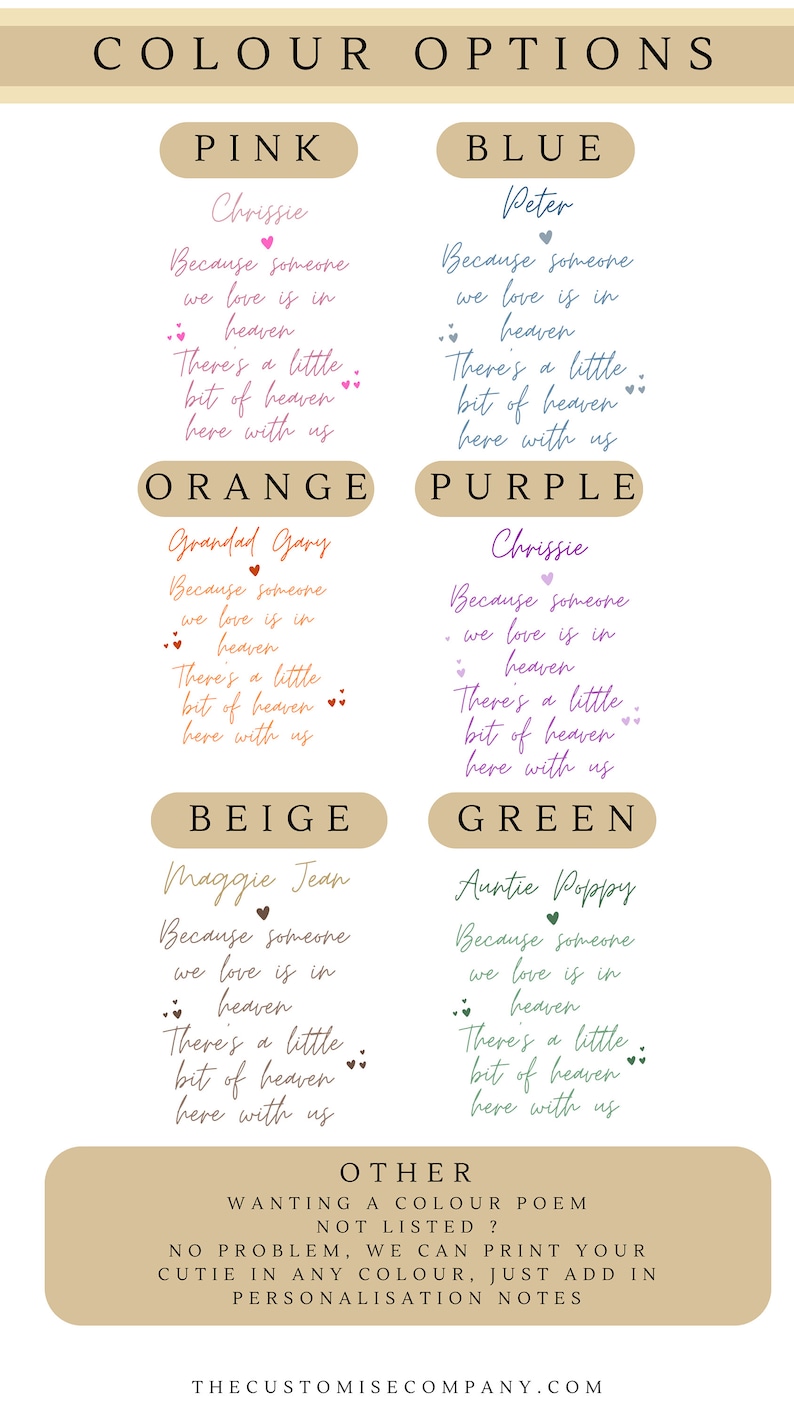 COLOUR OPTIONS
PINK
Chrissie
Because someone
we love is in
heaven
There's a little
bit of heaven
here with us
BLUE
Peter
Because someone
we love is in
heaven
There's a little
bit of heaven
here with us
ORANGE
Grandad Gary
Because someone
we love is in
heaven
There's a little
bit of heaven
here with us
PURPLE
Chrissie
Because someone
we love is in
heaven
There's a little
bit of heaven
here with us
BEIGE
Maggie Jean
Because someone
we love is in
heaven
There's a little
bit of heaven
here with us
GREEN
Auntie Poppy
Because someone
we love is in
heaven
There's a little
bit of heaven
here with us
OTHER
WANTING A COLOUR POEM
NOT LISTED ?
NO PROBLEM, WE CAN PRINT YOUR
CUTIE IN ANY COLOUR, JUST ADD IN
PERSONALISATION NOTES
THECUSTOMISECOMPANY.COM